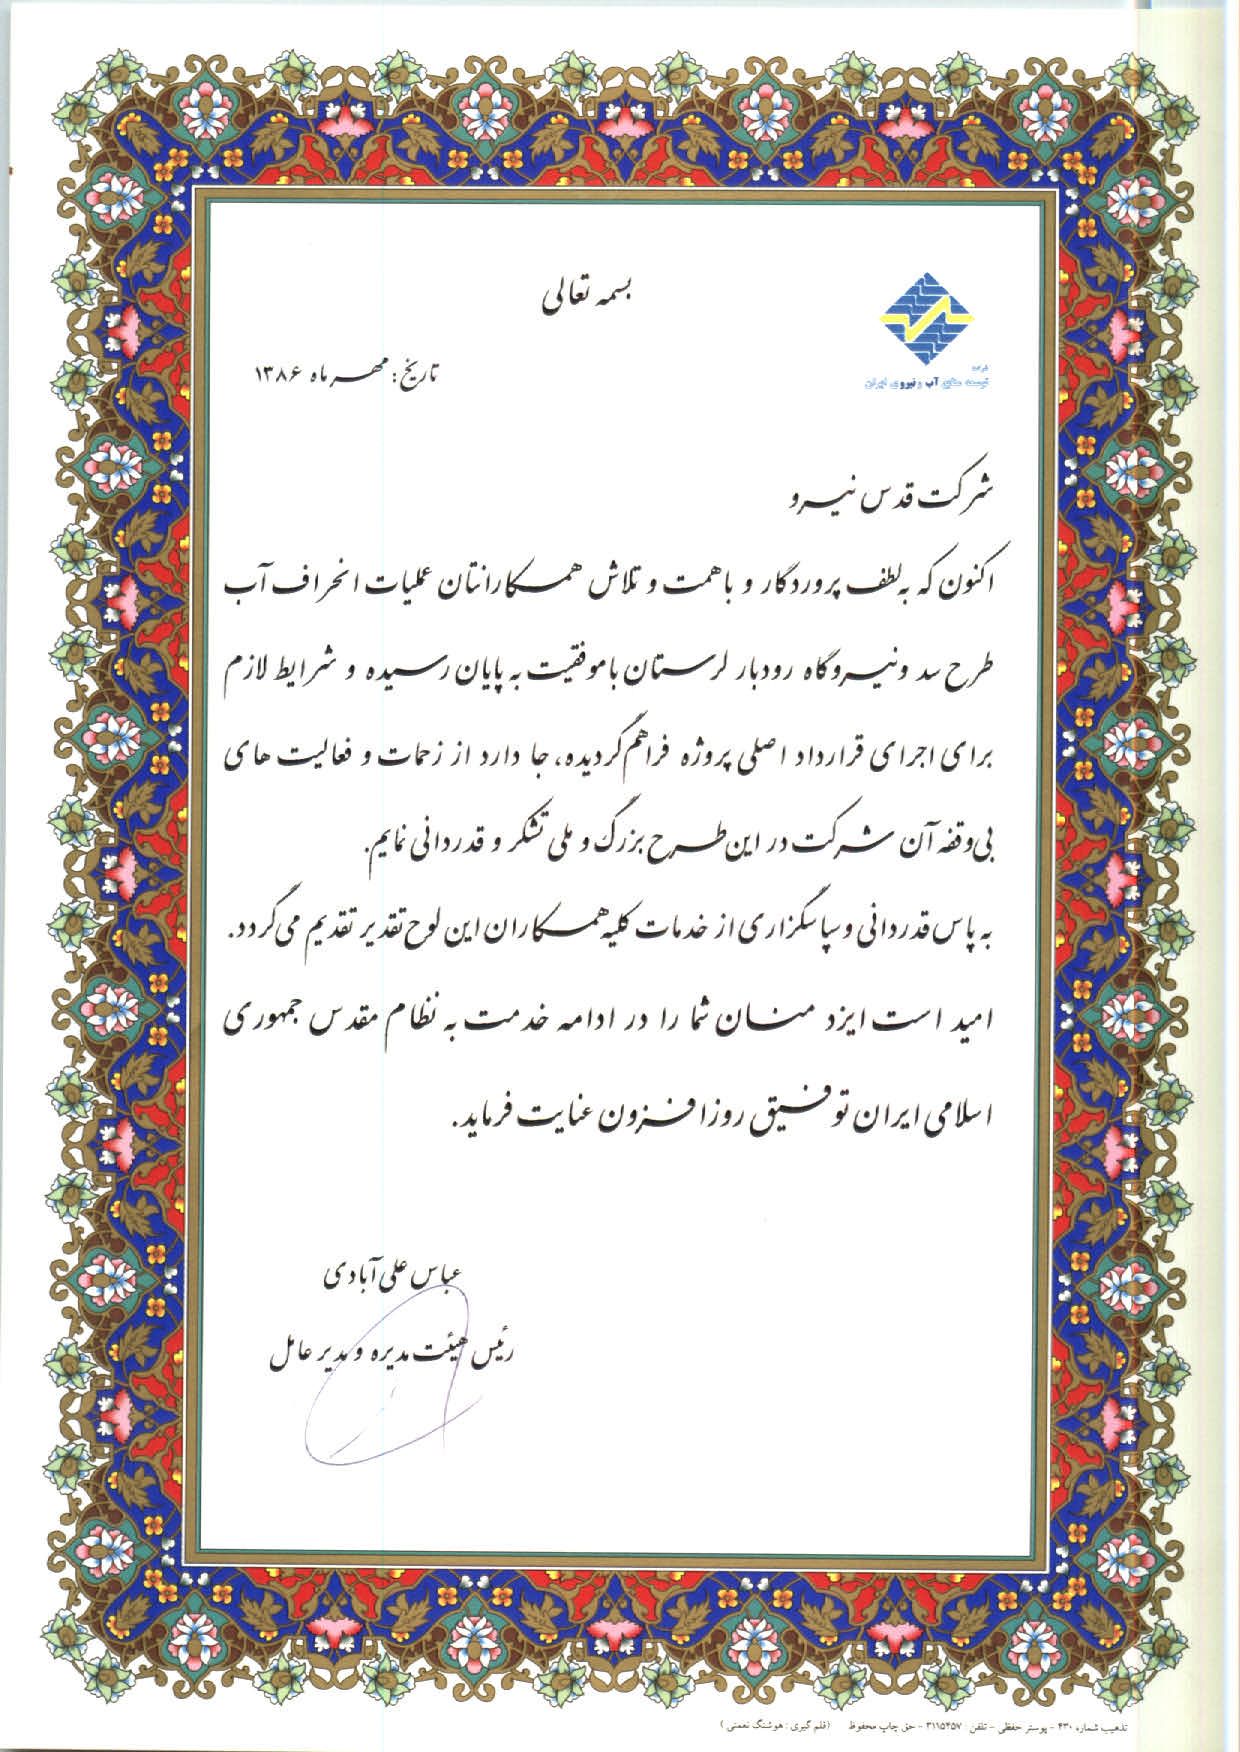 بسمه تعالی
شرکت
توسعه منابع آب و نیروی ایران
تاریخ: مهر ماه ۱۳۸۶
شرکت قدس نیرو
اکنون که به لطف پروردگار و با همت و تلاش همکارانتان عملیات انحراف آب
طرح سد و نیروگاه رودبار لرستان با موفقیت به پایان رسیده و شرایط لازم
برای اجرای قرارداد اصلی پروژه فراهم گردیده، جا دارد از زحمات و فعالیت های
بی وقفه آن شرکت در این طرح بزرگ و ملی تشکر و قدردانی نمایم.
به پاس قدردانی و سپاسگزاری از خدمات کلیه همکاران این لوح تقدیر تقدیم می گردد.
امید است ایزد منان شما را در ادامه خدمت به نظام مقدس جمهوری
اسلامی ایران توفیق روزافزون عنایت فرماید.
عباس علی آبادی
رئیس هیئت مدیره و مدیر عامل
تذهیب شماره ۴۳۰ - پوستر حفظی - تلفن: ۳۱۱۵۴۵۷ - حق چاپ محفوظ (قلم گیری: هوشنگ نعمتی)